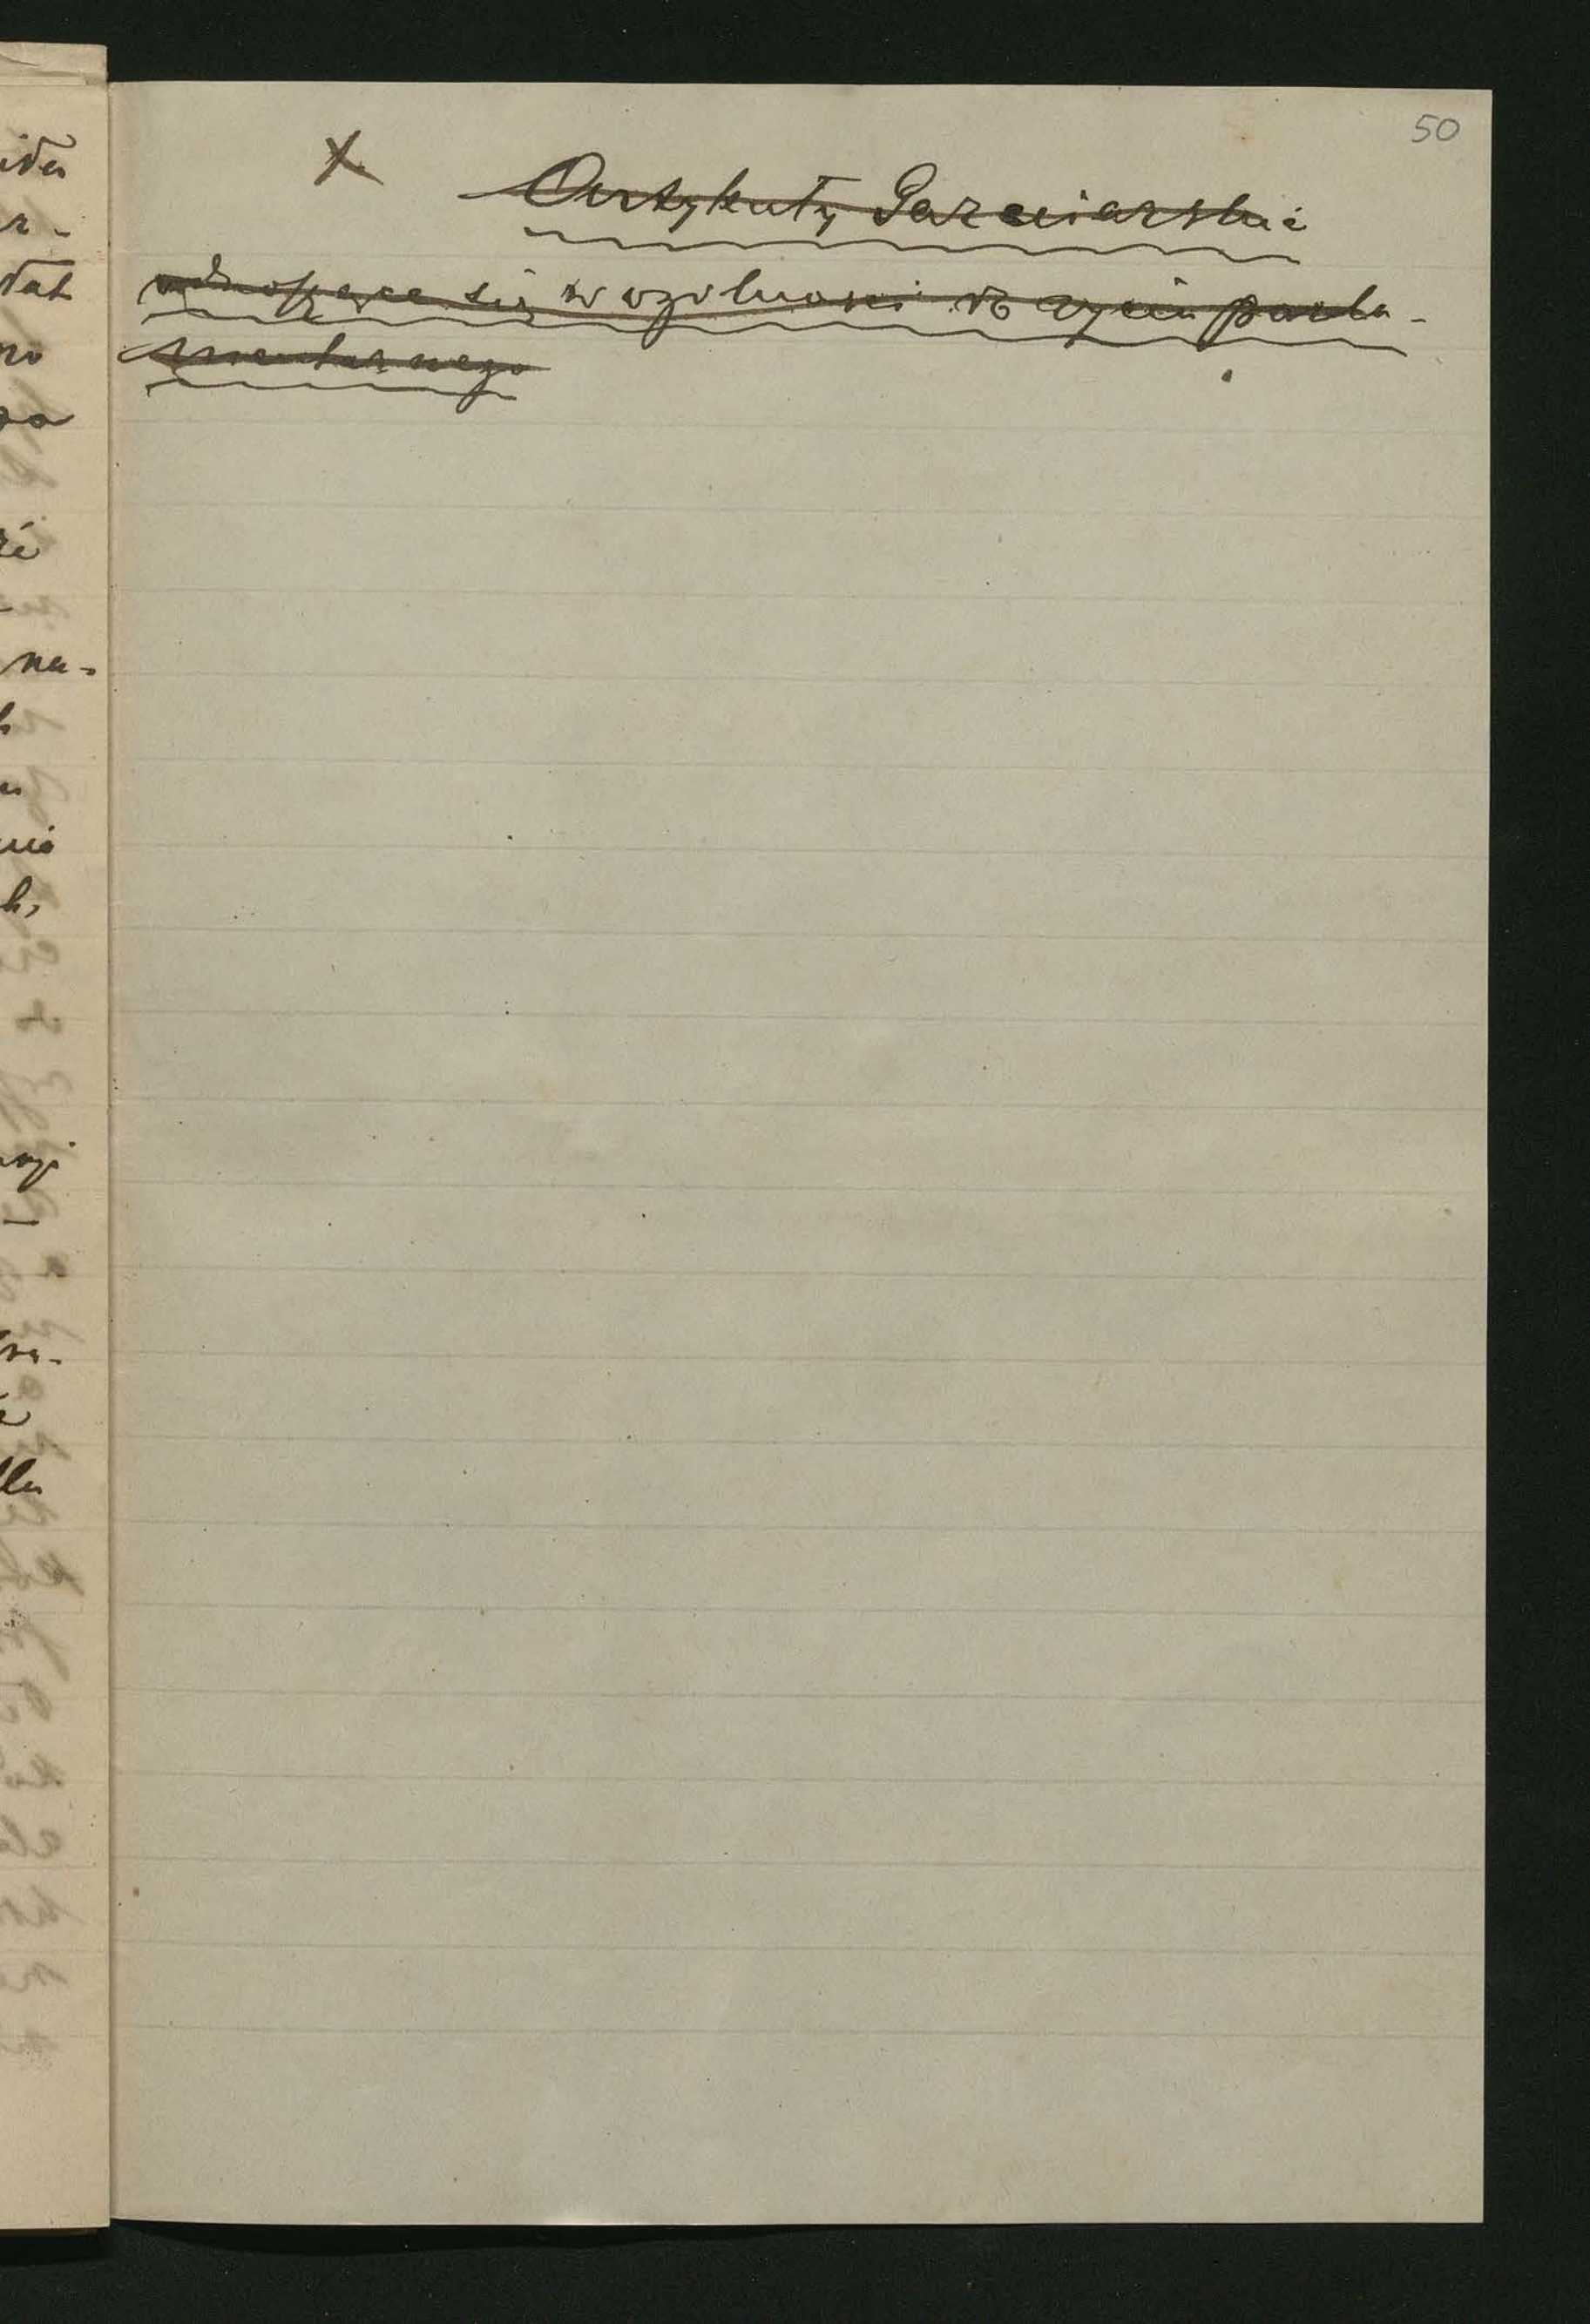 50
X
Artykuły Gazeciarskie
odnoszące się w ogólności do życia parla-
mentarnego